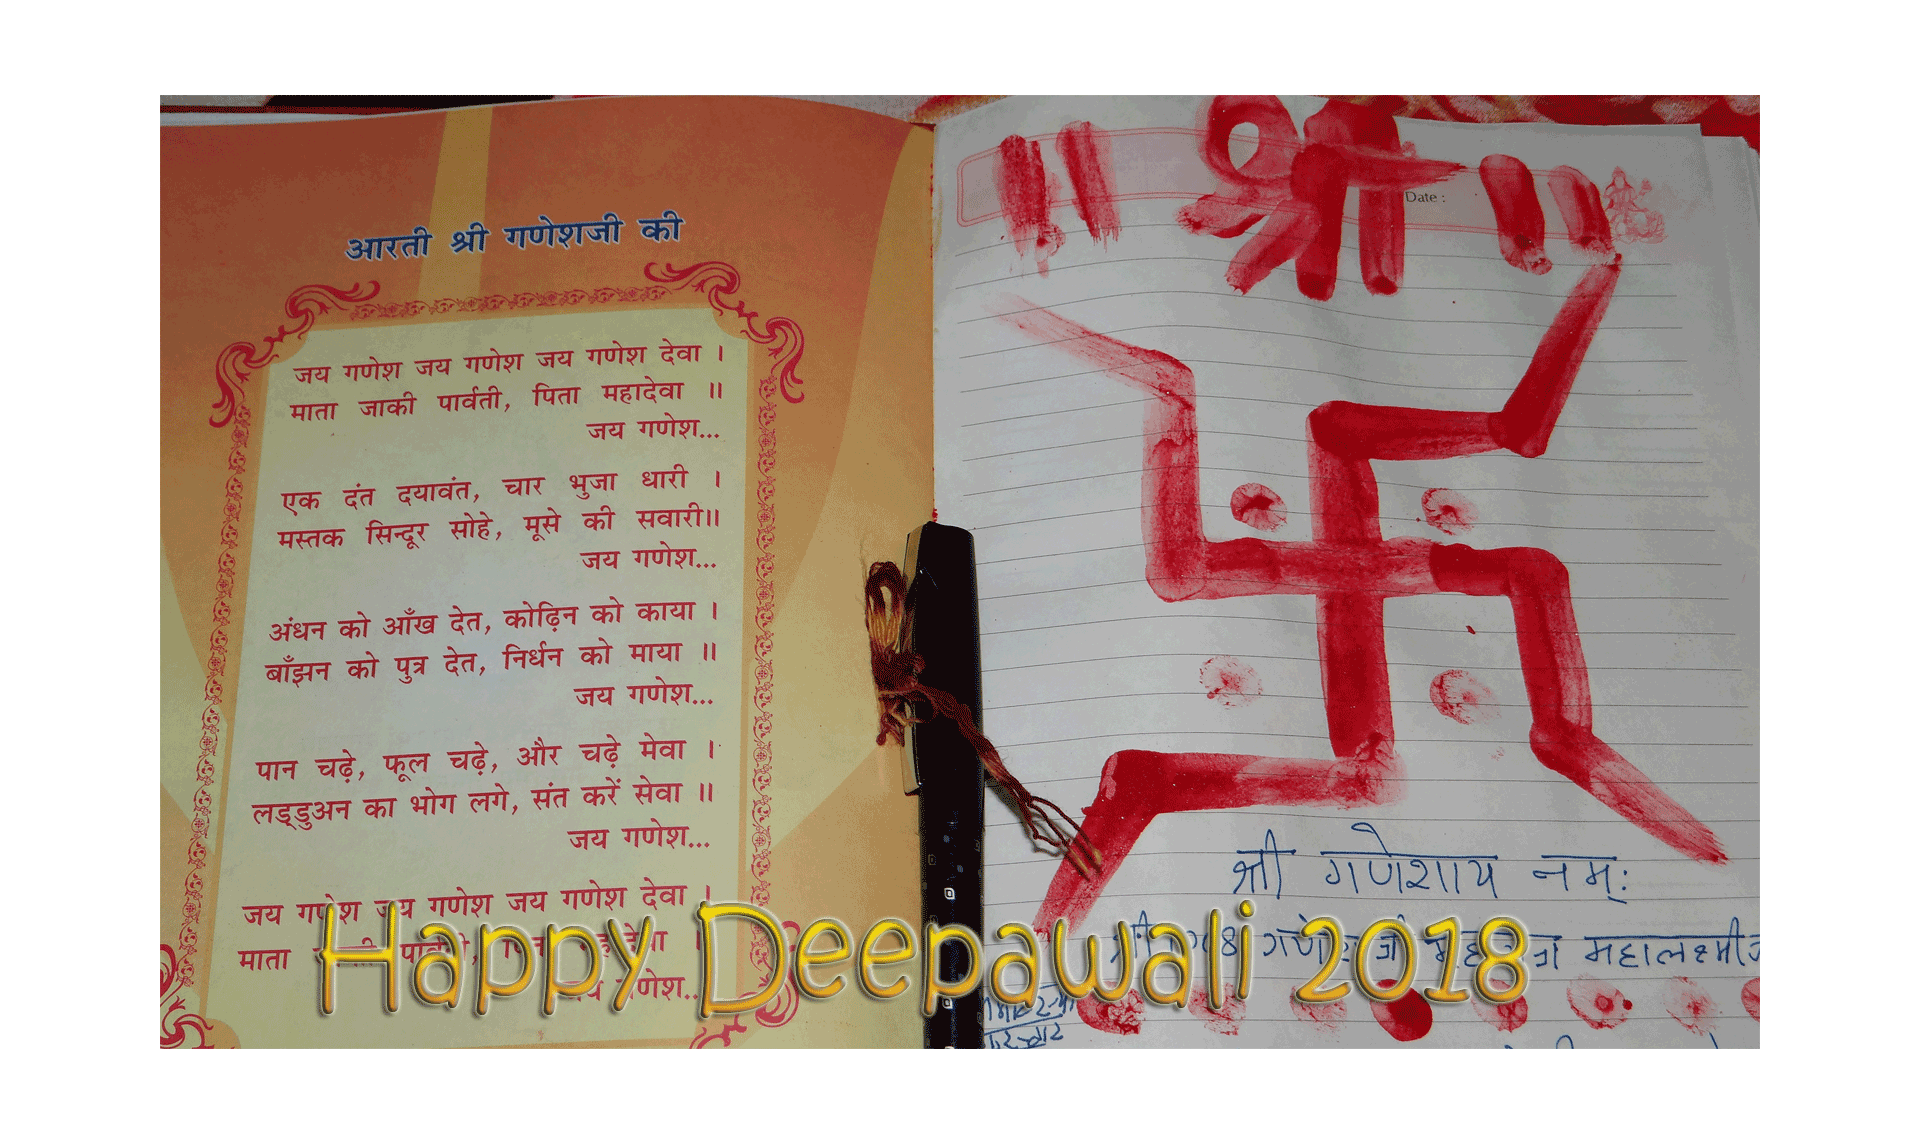 आरती श्री गणेशजी की
जय गणेश जय गणेश जय गणेश देवा ।
माता जाकी पार्वती, पिता महादेवा ॥
जय गणेश...
एक दंत दयावंत, चार भुजा धारी ।
मस्तक सिन्दूर सोहे, मूसे की सवारी॥
जय गणेश...
अंधन को आँख देत, कोढ़िन को काया ।
बाँझन को पुत्र देत, निर्धन को माया ॥
जय गणेश...
पान चढ़े, फूल चढ़े, और चढ़े मेवा ।
लड्डुअन का भोग लगे, संत करें सेवा ॥
जय गणेश...
जय गणेश जय गणेश जय गणेश देवा ।
माता
गणेश...
॥ श्री ॥
Date :
श्री गणेशाय नम्ः
महालक्ष्मी
Happy Deepawali 2018